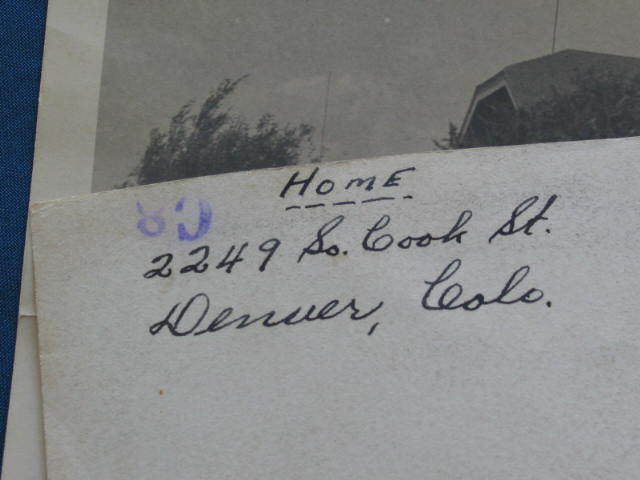 HOME
2249 So. Cook St.
Denver, Colo.